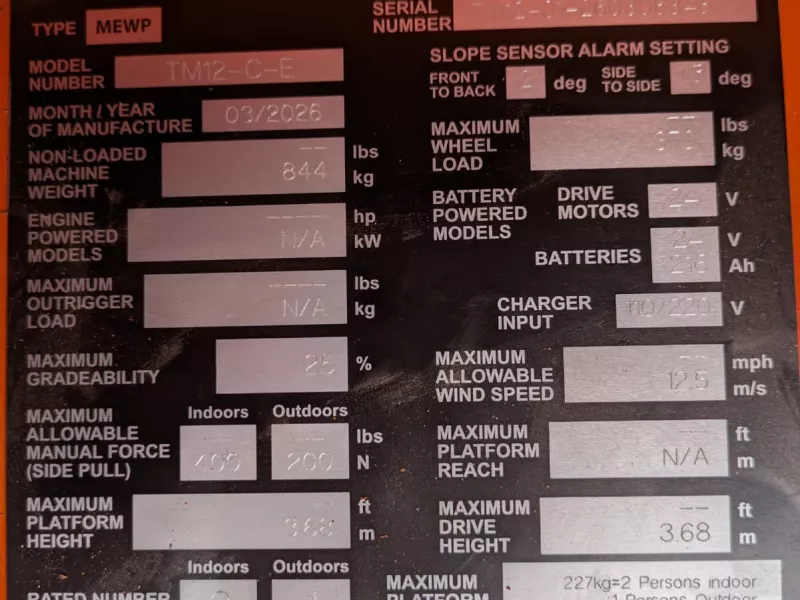 TYPE MEWP
SERIAL NUMBER
MODEL NUMBER TM12-C-E
MONTH / YEAR OF MANUFACTURE 03/2026
NON-LOADED MACHINE WEIGHT -- lbs
844 kg
ENGINE POWERED MODELS ---- hp
N/A kW
MAXIMUM OUTRIGGER LOAD ---- lbs
N/A kg
MAXIMUM GRADEABILITY 25 %
Indoors Outdoors
MAXIMUM ALLOWABLE MANUAL FORCE (SIDE PULL) -- -- lbs
400 200 N
MAXIMUM PLATFORM HEIGHT -- ft
3.68 m
Indoors Outdoors
RATED NUMBER
SLOPE SENSOR ALARM SETTING
FRONT TO BACK deg SIDE TO SIDE deg
MAXIMUM WHEEL LOAD -- lbs
kg
BATTERY POWERED MODELS
DRIVE MOTORS V
BATTERIES V
Ah
CHARGER INPUT 110/220 V
MAXIMUM ALLOWABLE WIND SPEED -- mph
12.5 m/s
MAXIMUM PLATFORM REACH -- ft
N/A m
MAXIMUM DRIVE HEIGHT -- ft
3.68 m
MAXIMUM PLATFORM
227kg=2 Persons indoor
1 Persons Outdoor